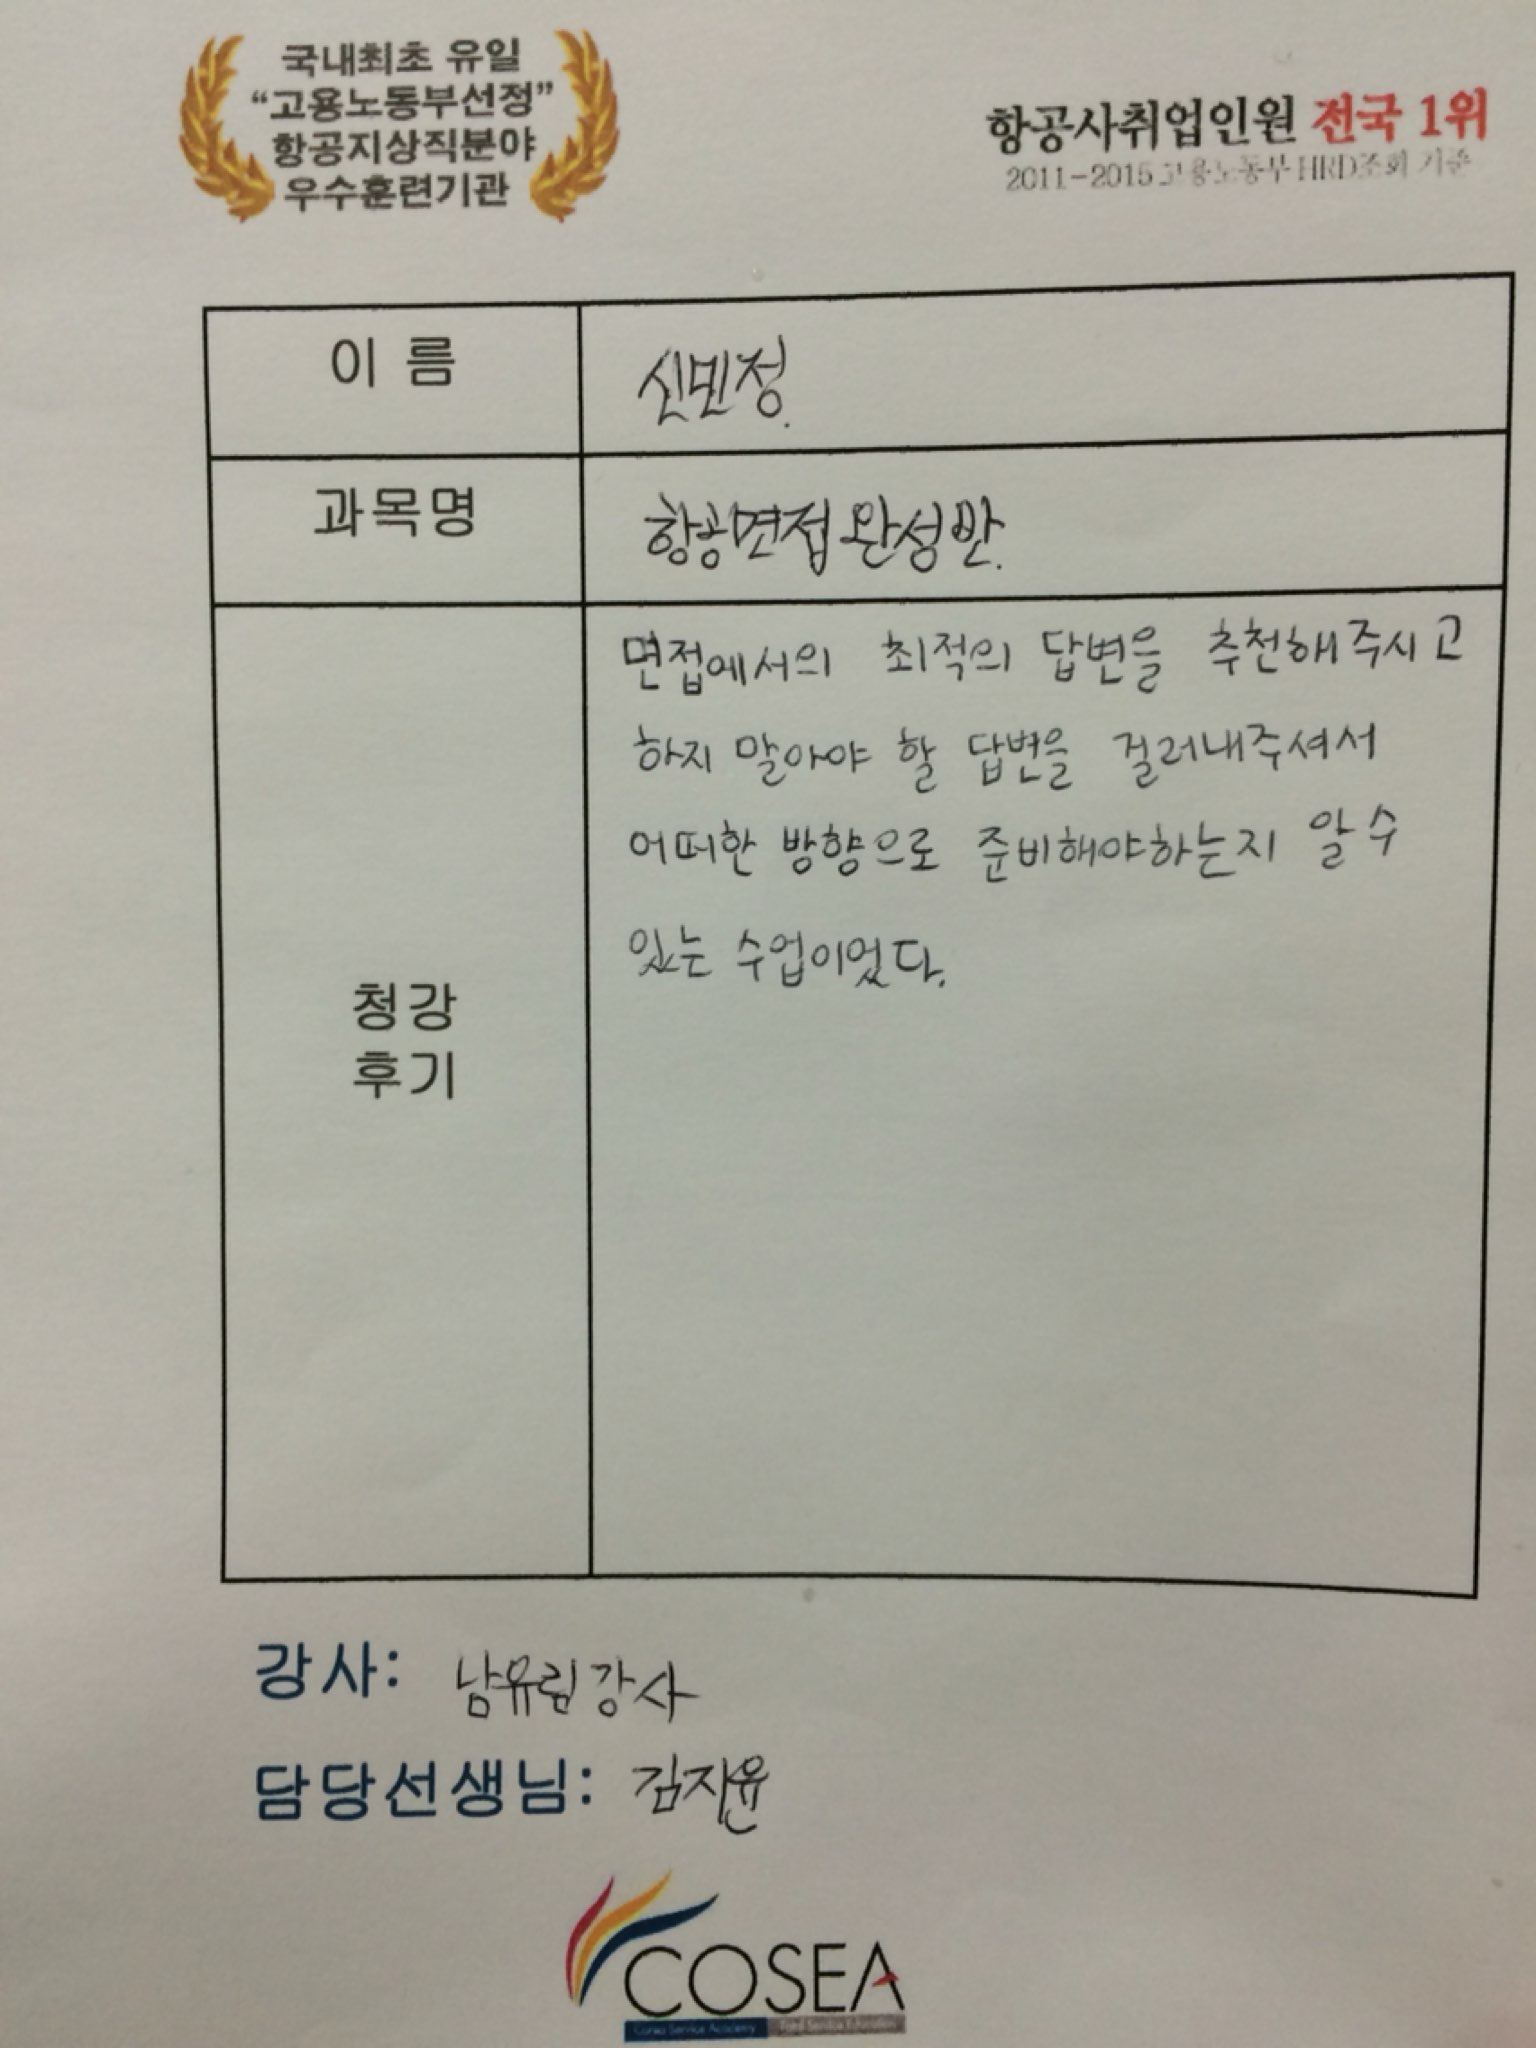 국내최초 유일
“고용노동부선정”
항공지상직분야
우수훈련기관
항공사취업인원 전국 1위
2011-2015 고용노동부 HRD조회 기준
이 름
신민정.
과목명
항공면접 완성반.
면접에서의 최적의 답변을 추천해주시고
하지 말아야 할 답변을 걸러내주셔서
어떠한 방향으로 준비해야하는지 알 수
있는 수업이었다.
청강
후기
강사: 남유림 강사
담당선생님: 김지윤
COSEA
Corea Service Academy Total Service Education